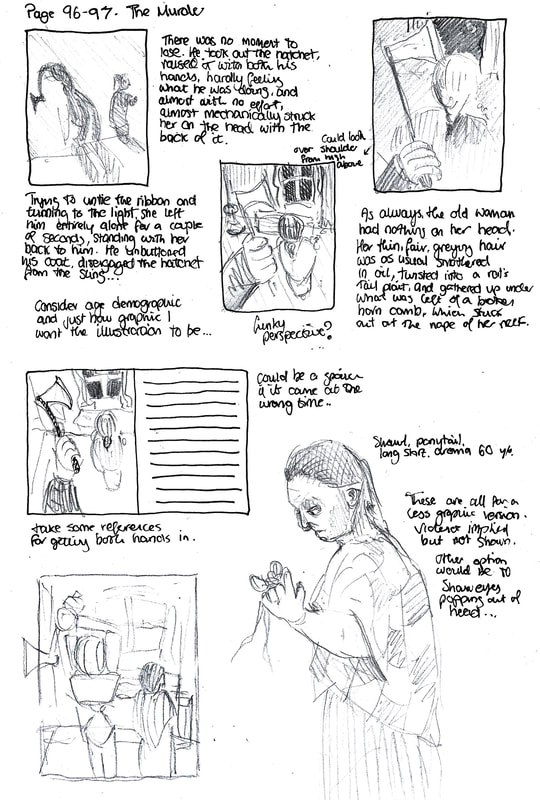 Page 96-97. The Murder
There was no moment to
lose. He took out the hatchet,
raised it with both his
hands, hardly feeling
what he was doing, and
almost with no effort,
almost mechanically struck
her on the head with the
back of it.
Could look
over shoulder
from high
above
Trying to untie the ribbon and
turning to the light, she left
him entirely alone for a couple
of seconds, standing with her
back to him. He unbuttoned
his coat, disengaged the hatchet
from the sling...
Consider age demographic
and just how graphic I
want the illustration to be...
funky
perspective?
As always, the old woman
had nothing on her head.
Her thin, fair, greying hair
was as usual smothered
in oil, twisted into a rat's
tail plait, and gathered up under
what was left of a broken
horn comb, which stuck
out at the nape of her neck.
Could be a spoiler
if it came at the
wrong time..
take some references
for getting both hands in.
Shawl, ponytail,
long skirt. around 60 y/o.
These are all for a
less graphic version.
Violence implied
but not shown.
Other option
would be to
show eyes
popping out of
head...